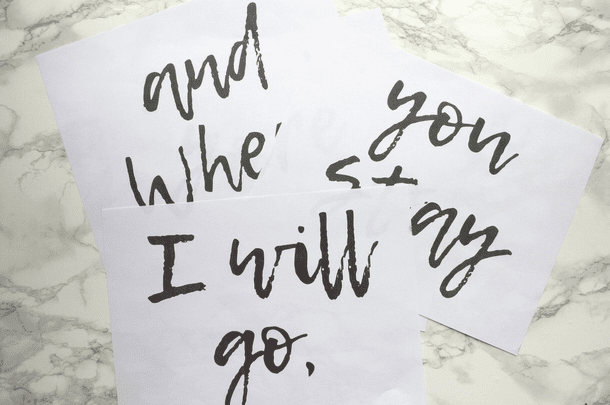 and
where
you
stay
I will
go,